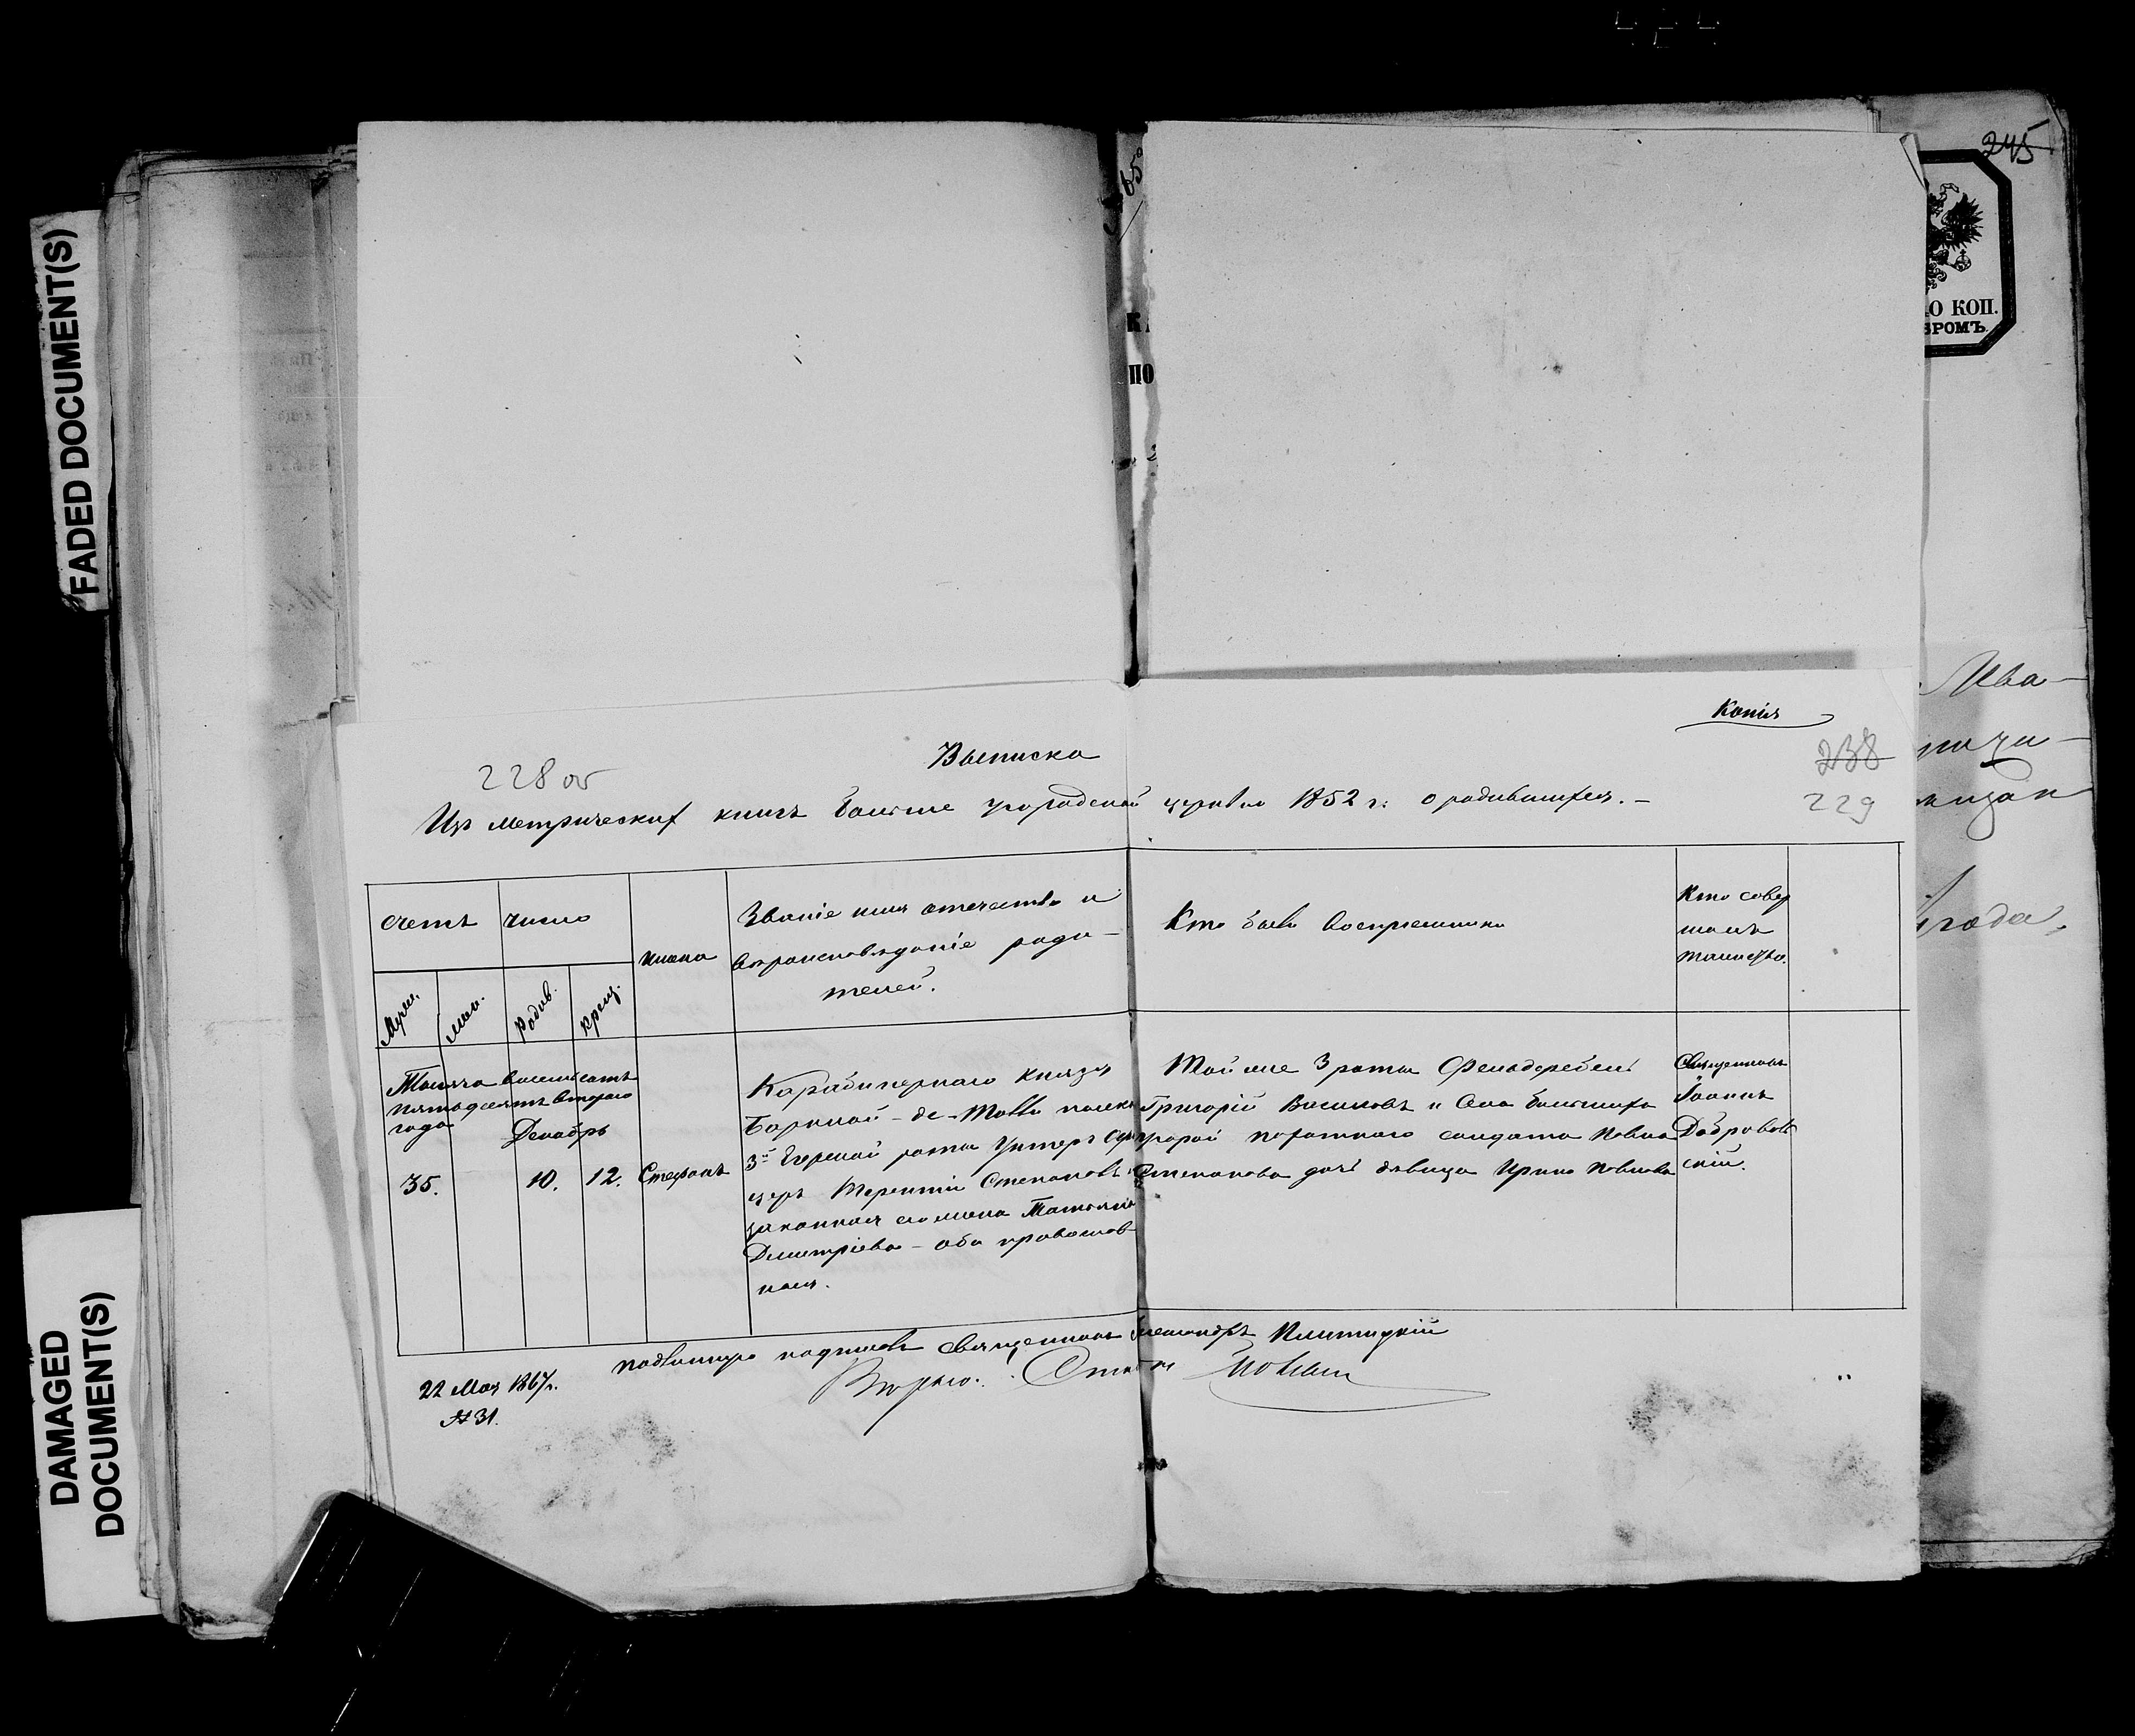 245
FADED DOCUMENT(S)
О КОП.
БРОМЪ.
ПО
Ива-
Копія
Выписка
228 об
238
229
Изъ метрическихъ книгъ церкви 1852 г: о родившихся.-
счетъ число
имена
Званіе имя отчество и
вѣроисповѣданіе роди-
телей.
Кто былъ воспріемники
Кто совер
шалъ
таинство.
Муж.
жен.
Родив.
Крещ.
Тысяча восемьсотъ
пятьдесятъ втораго
года
Декабрь
35.
10.
12.
Стефанъ
Карабинернаго князя
Барклай-де-Толли полка
3й Егерской роты Унтеръ Офи
церъ Терентій Степановъ и
законная его жена Татьяна
Димитріева - оба православ
ные.
Той же 3 роты Фельдфебель
Григорій Васильевъ и
солдата Павла
Степанова дочь дѣвица Ирина Павлова
Священникъ
Іоаннъ
Добровол
скій.
подлинную подписалъ Священникъ Александръ
Вѣрно:
22 Мая 1867г.
№ 31.
года,
DAMAGED
DOCUMENT(S)